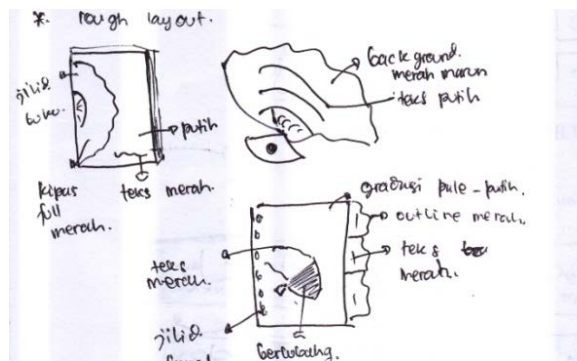 *. rough layout.
jilid
buku
putih
kipas
full
merah.
teks merah.
background.
merah marun
teks putih
gradasi pule-putih.
outline merah.
teks
merah.
teks
merah.
jilid
berlubang.